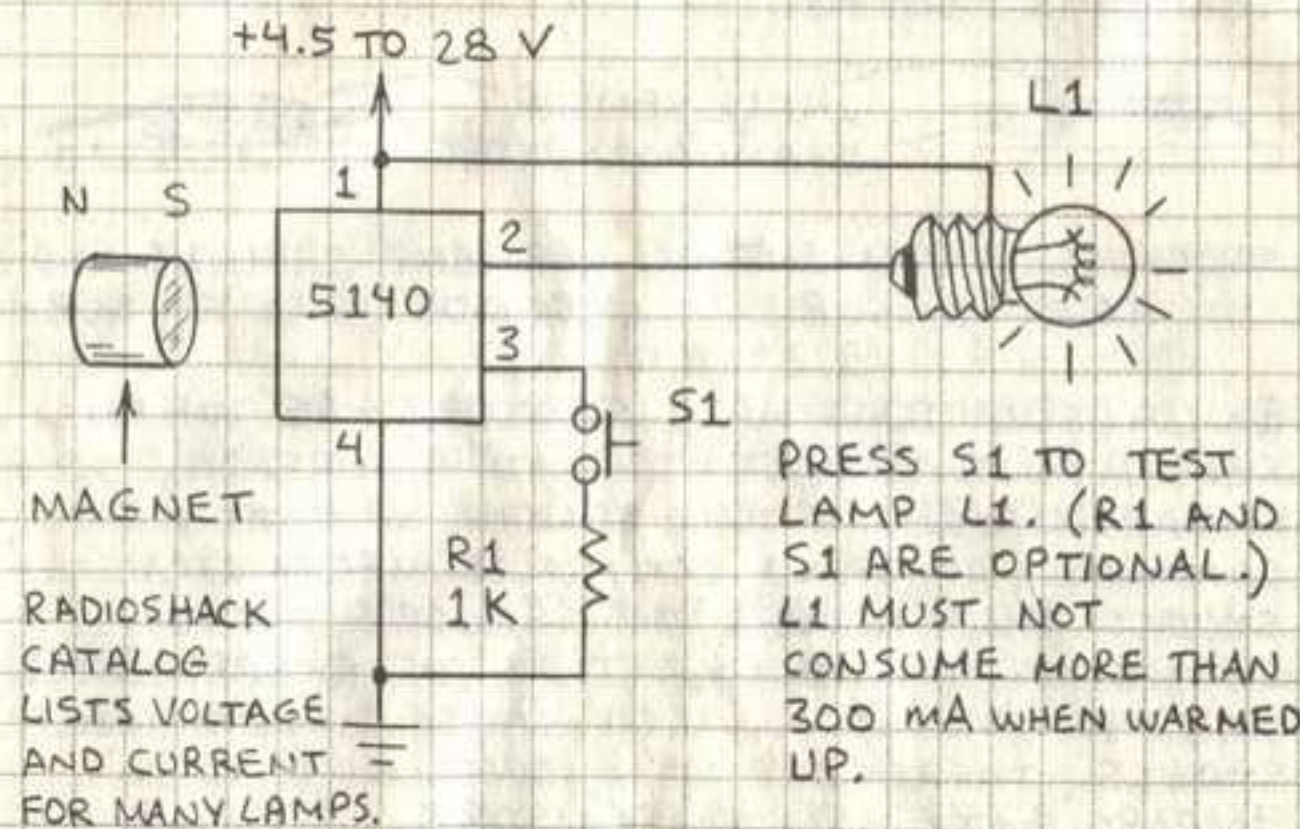 +4.5 TO 28 V
L1
N S
1
2
5140
3
S1
4
MAGNET
R1
1K
RADIOSHACK
CATALOG
LISTS VOLTAGE
AND CURRENT
FOR MANY LAMPS.
PRESS S1 TO TEST
LAMP L1. (R1 AND
S1 ARE OPTIONAL.)
L1 MUST NOT
CONSUME MORE THAN
300 MA WHEN WARMED
UP.